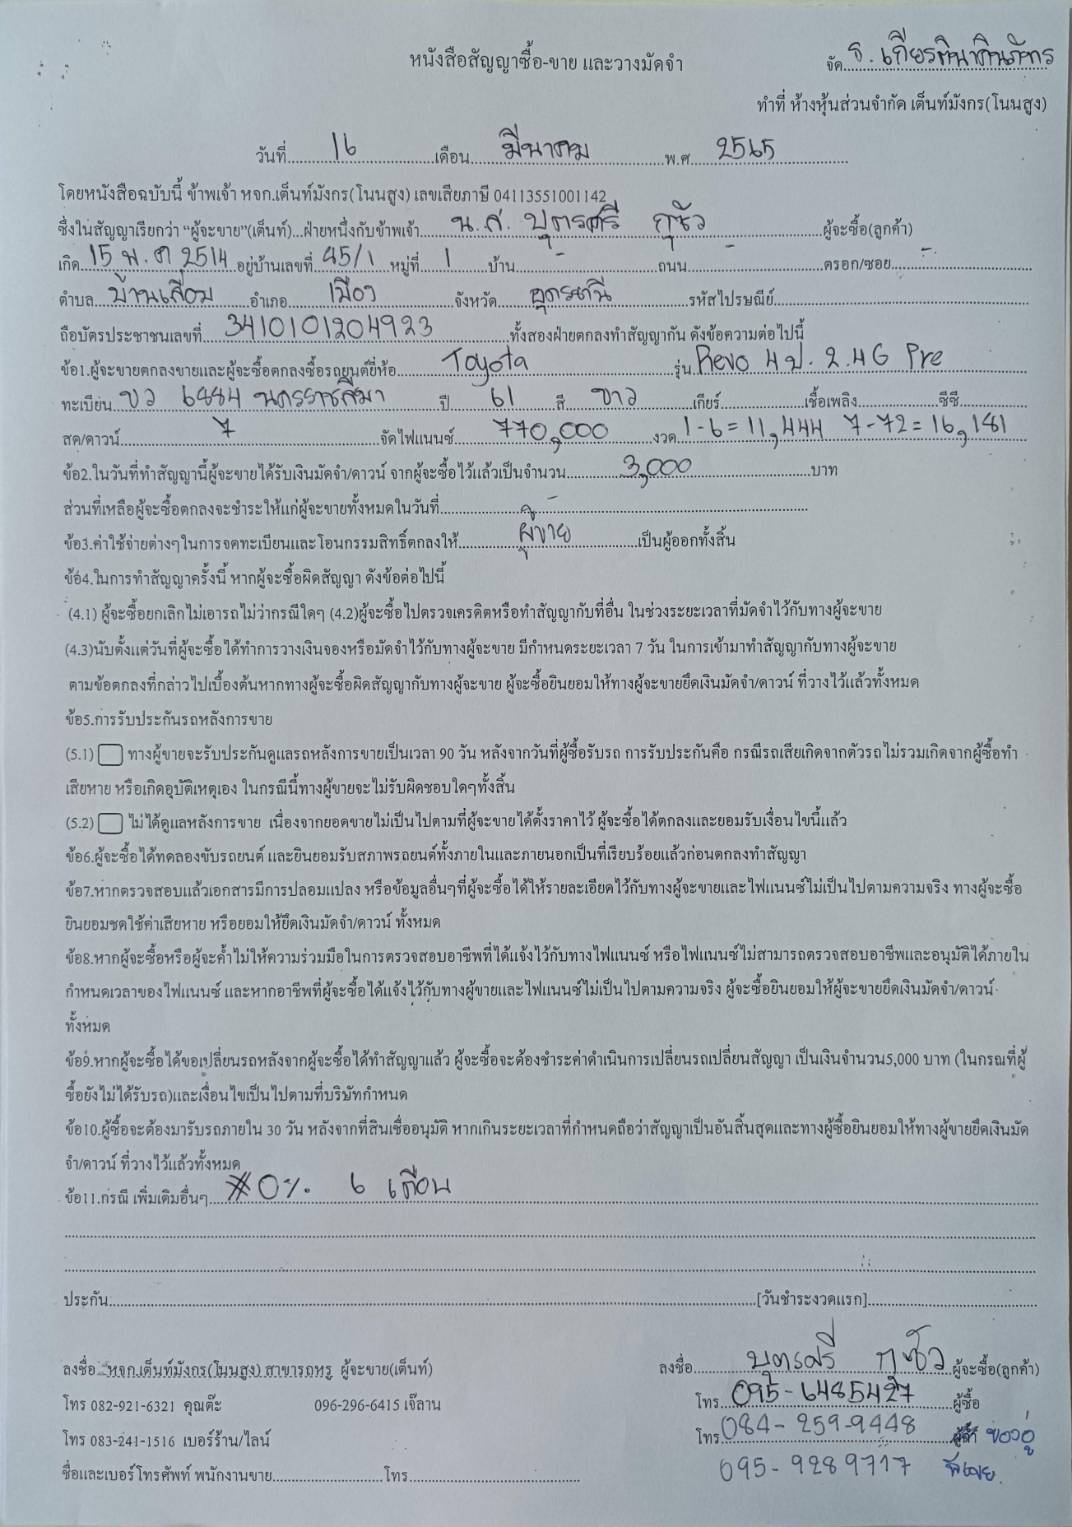 หนังสือสัญญาซื้อ-ขาย และวางมัดจำ
จัด ธ. เกียรตินาคินภัทร
ทำที่ ห้างหุ้นส่วนจำกัด เต็นท์มังกร(โนนสูง)
วันที่ 16 เดือน มีนาคม พ.ศ. 2565
โดยหนังสือฉบับนี้ ข้าพเจ้า หจก.เต็นท์มังกร(โนนสูง) เลขเสียภาษี 04113551001142
ซึ่งในสัญญาเรียกว่า "ผู้จะขาย"(เต็นท์)...ฝ่ายหนึ่งกับข้าพเจ้า น.ส. บุตรศรี กุชัว ผู้จะซื้อ(ลูกค้า)
เกิด 15 พ.ค 2514 อยู่บ้านเลขที่ 45/1 หมู่ที่ 1 บ้าน - ถนน - ตรอก/ซอย -
ตำบล บ้านเลื่อม อำเภอ เมือง จังหวัด อุดรธานี รหัสไปรษณีย์
ถือบัตรประชาชนเลขที่ 3410101204923 ทั้งสองฝ่ายตกลงทำสัญญากัน ดังข้อความต่อไปนี้
ข้อ1.ผู้จะขายตกลงขายและผู้จะซื้อตกลงซื้อรถยนต์ยี่ห้อ Toyota รุ่น Revo 4ป. 2.4G Pre
ทะเบียน ขว 6884 นครราชสีมา ปี 61 สี ขาว เกียร์ เชื้อเพลิง ซีซี
สด/ดาวน์ 7 จัดไฟแนนซ์ 770,000 งวด 1-6 = 11,444 7-72 = 16,181
ข้อ2.ในวันที่ทำสัญญานี้ผู้จะขายได้รับเงินมัดจำ/ดาวน์ จากผู้จะซื้อไว้แล้วเป็นจำนวน 3,000 บาท
ส่วนที่เหลือผู้จะซื้อตกลงจะชำระให้แก่ผู้จะขายทั้งหมดในวันที่ -
ข้อ3.ค่าใช้จ่ายต่างๆในการจดทะเบียนและโอนกรรมสิทธิ์ตกลงให้ ผู้ขาย เป็นผู้ออกทั้งสิ้น
ข้อ4.ในการทำสัญญาครั้งนี้ หากผู้จะซื้อผิดสัญญา ดังข้อต่อไปนี้
(4.1) ผู้จะซื้อยกเลิกไม่เอารถไม่ว่ากรณีใดๆ (4.2)ผู้จะซื้อไปตรวจเครดิตหรือทำสัญญากับที่อื่น ในช่วงระยะเวลาที่มัดจำไว้กับทางผู้จะขาย
(4.3)นับตั้งแต่วันที่ผู้จะซื้อได้ทำการวางเงินจองหรือมัดจำไว้กับทางผู้จะขาย มีกำหนดระยะเวลา 7 วัน ในการเข้ามาทำสัญญากับทางผู้จะขาย
ตามข้อตกลงที่กล่าวไปเบื้องต้นหากทางผู้จะซื้อผิดสัญญากับทางผู้จะขาย ผู้จะซื้อยินยอมให้ทางผู้จะขายยึดเงินมัดจำ/ดาวน์ ที่วางไว้แล้วทั้งหมด
ข้อ5.การรับประกันรถหลังการขาย
(5.1) ทางผู้ขายจะรับประกันดูแลรถหลังการขายเป็นเวลา 90 วัน หลังจากวันที่ผู้ซื้อรับรถ การรับประกันคือ กรณีรถเสียเกิดจากตัวรถไม่รวมเกิดจากผู้ซื้อทำ
เสียหาย หรือเกิดอุบัติเหตุเอง ในกรณีนี้ทางผู้ขายจะไม่รับผิดชอบใดๆทั้งสิ้น
(5.2) ไม่ได้ดูแลหลังการขาย เนื่องจากยอดขายไม่เป็นไปตามที่ผู้จะขายได้ตั้งราคาไว้ ผู้จะซื้อได้ตกลงและยอมรับเงื่อนไขนี้แล้ว
ข้อ6.ผู้จะซื้อได้ทดลองขับรถยนต์ และยินยอมรับสภาพรถยนต์ทั้งภายในและภายนอกเป็นที่เรียบร้อยแล้วก่อนตกลงทำสัญญา
ข้อ7.หากตรวจสอบแล้วเอกสารมีการปลอมแปลง หรือข้อมูลอื่นๆที่ผู้จะซื้อได้ให้รายละเอียดไว้กับทางผู้จะขายและไฟแนนซ์ไม่เป็นไปตามความจริง ทางผู้จะซื้อ
ยินยอมชดใช้ค่าเสียหาย หรือยอมให้ยึดเงินมัดจำ/ดาวน์ ทั้งหมด
ข้อ8.หากผู้จะซื้อหรือผู้จะค้ำไม่ให้ความร่วมมือในการตรวจสอบอาชีพที่ได้แจ้งไว้กับทางไฟแนนซ์ หรือไฟแนนซ์ไม่สามารถตรวจสอบอาชีพและอนุมัติได้ภายใน
กำหนดเวลาของไฟแนนซ์ และหากอาชีพที่ผู้จะซื้อได้แจ้งไว้กับทางผู้ขายและไฟแนนซ์ไม่เป็นไปตามความจริง ผู้จะซื้อยินยอมให้ผู้จะขายยึดเงินมัดจำ/ดาวน์
ทั้งหมด
ข้อ9.หากผู้จะซื้อได้ขอเปลี่ยนรถหลังจากผู้จะซื้อได้ทำสัญญาแล้ว ผู้จะซื้อจะต้องชำระค่าดำเนินการเปลี่ยนรถเปลี่ยนสัญญา เป็นเงินจำนวน5,000 บาท (ในกรณที่ผู้
ซื้อยังไม่ได้รับรถ)และเงื่อนไขเป็นไปตามที่บริษัทกำหนด
ข้อ10.ผู้ซื้อจะต้องมารับรถภายใน 30 วัน หลังจากที่สินเชื่ออนุมัติ หากเกินระยะเวลาที่กำหนดถือว่าสัญญาเป็นอันสิ้นสุดและทางผู้ซื้อยินยอมให้ทางผู้ขายยึดเงินมัด
จำ/ดาวน์ ที่วางไว้แล้วทั้งหมด
ข้อ11.กรณี เพิ่มเติมอื่นๆ *0% 6 เดือน
ประกัน [วันชำระงวดแรก]
ลงชื่อ หจก.เต็นท์มังกร(โนนสูง) สาขารถหรู ผู้จะขาย(เต็นท์) ลงชื่อ บุตรศรี กุชัว ผู้จะซื้อ(ลูกค้า)
โทร 082-921-6321 คุณต๊ะ 096-296-6415 เจ๊ลาน โทร 095-6485427 ผู้ซื้อ
โทร 083-241-1516 เบอร์ร้าน/ไลน์ โทร 084-259-9448 ของอู่
ชื่อและเบอร์โทรศัพท์ พนักงานขาย โทร 095-9289717